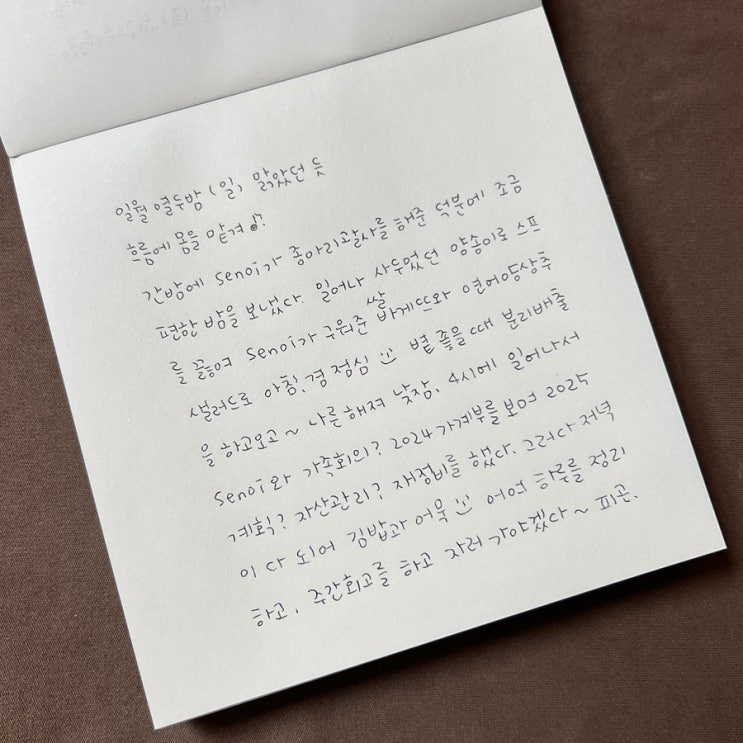 일월 열두밤 (일) 맑았던 듯
흐름에 몸을 맡겨♪.
간밤에 Senoi가 종아리괄사를 해준 덕분에 조금
편한 밤을 보냈다. 일어나 사두었던 양송이로 스프
를 끓여 Senoi가 구워준 쌀바게뜨와 연어양상추
샐러드로 아침.겸 점심 :) 볕 좋을 때 분리배출
을 하고오고~ 나른해져 낮잠. 4시에 일어나서
Senoi와 가족회의? 2024 가계부를 보며 2025
계획? 자산관리? 재정비를 했다. 그러다 저녁
이 다 되어 김밥과 어묵 :) 어여 하루를 정리
하고, 주간회고를 하고 자러 가야겠다~ 피곤.